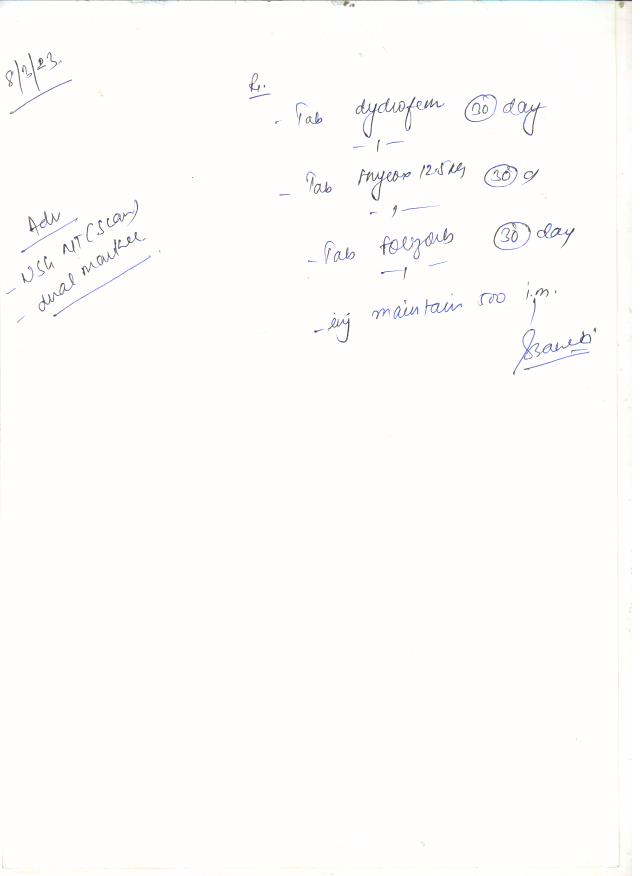 8/3/23.
Rx.
- Tab dydrofem 30 day
- 1 -
- Tab Thyrox 12.5 mg 30 d
- 1 -
- Tab folizorb 30 day
- 1 -
- inj maintain 500 i.m.
Adv
- USG NT (Scan)
- dual marker